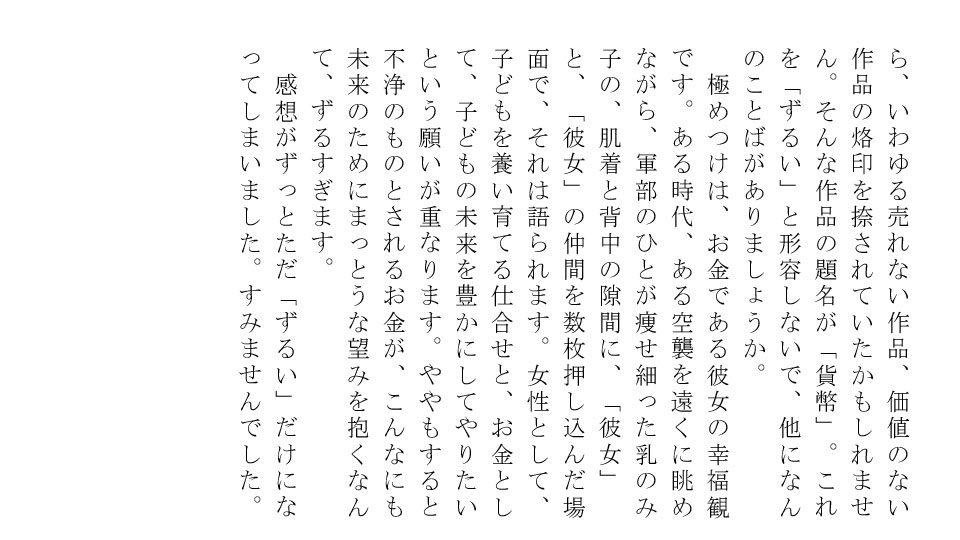 ら、いわゆる売れない作品、価値のない
作品の烙印を捺されていたかもしれませ
ん。そんな作品の題名が「貨幣」。これ
を「ずるい」と形容しないで、他になん
のことばがありましょうか。
　極めつけは、お金である彼女の幸福観
です。ある時代、ある空襲を遠くに眺め
ながら、軍部のひとが痩せ細った乳のみ
子の、肌着と背中の隙間に、「彼女」
と、「彼女」の仲間を数枚押し込んだ場
面で、それは語られます。女性として、
子どもを養い育てる仕合せと、お金とし
て、子どもの未来を豊かにしてやりたい
という願いが重なります。ややもすると
不浄のものとされるお金が、こんなにも
未来のためにまっとうな望みを抱くなん
て、ずるすぎます。
　感想がずっとただ「ずるい」だけにな
ってしまいました。すみませんでした。